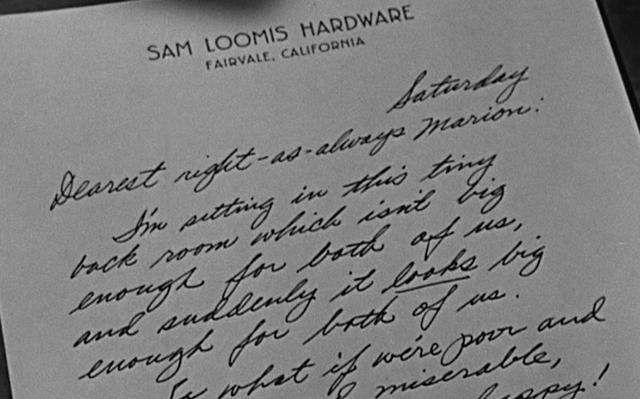 SAM LOOMIS HARDWARE
FAIRVALE, CALIFORNIA
Saturday
Dearest right-as-always Marion:
I'm sitting in this tiny
back room which isn't big
enough for both of us,
and suddenly it looks big
enough for both of us.
So what if we're poor and
miserable,
happy!